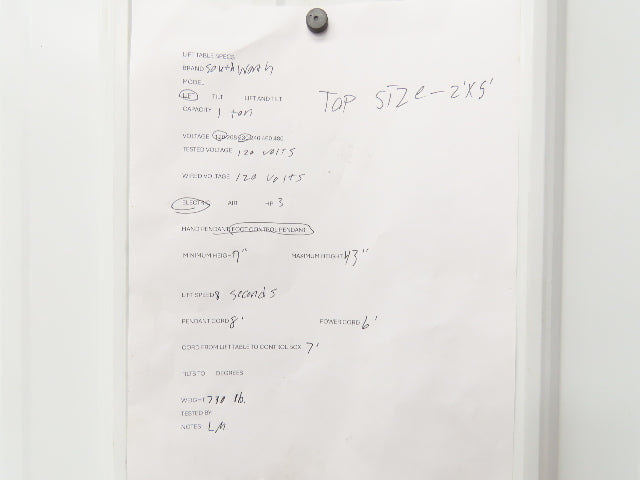 LIFT TABLE SPECS
BRAND Southworth
MODEL
LIFT TILT LIFT AND TILT
TOP SIZE - 2'X5'
CAPACITY 1 ton
VOLTAGE 120 208 230 240 460 480
TESTED VOLTAGE 120 volts
WIRED VOLTAGE 120 volts
ELECTRIC AIR HP 3
HAND PENDANT FOOT CONTROL PENDANT
MINIMUM HEIGHT 7" MAXIMUM HEIGHT 43"
LIFT SPEED 8 seconds
PENDANT CORD 8' POWER CORD 6'
CORD FROM LIFT TABLE TO CONTROL BOX 7'
TILTS TO DEGREES
WEIGHT 730 lb.
TESTED BY
NOTES LM